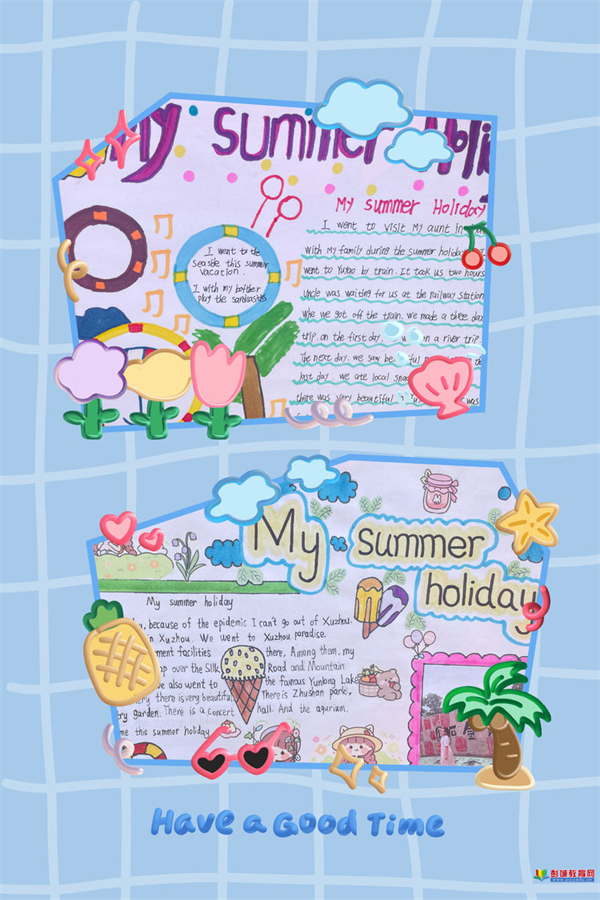 My summer Holi
My summer Holiday
I went to visit My aunt in
with My family during the summer holida
went to Yutao by train. It took us two hours
uncle was waiting for us at the railway station
we got off the train. we made a three day
trip on the first day on a river trip.
The next day. we saw be
last day. we ate local sna
there was very beautiful was
I went to the
seaside this summer
vacation.
I with my bother
play the sandcastles
My summer
holiday
My summer holiday
because of the epidemic I can't go out of Xuzhou.
in Xuzhou. We went to Xuzhou paradise.
ment facilities there, Among them, my
over the Silk Road and Mountain
we also went to the famous Yunlong Lake
there is very beautiful There is Zhushan park,
garden. There is a concert hall. And the aqurium.
me this summer holiday
Have a Good Time
彭城教育网